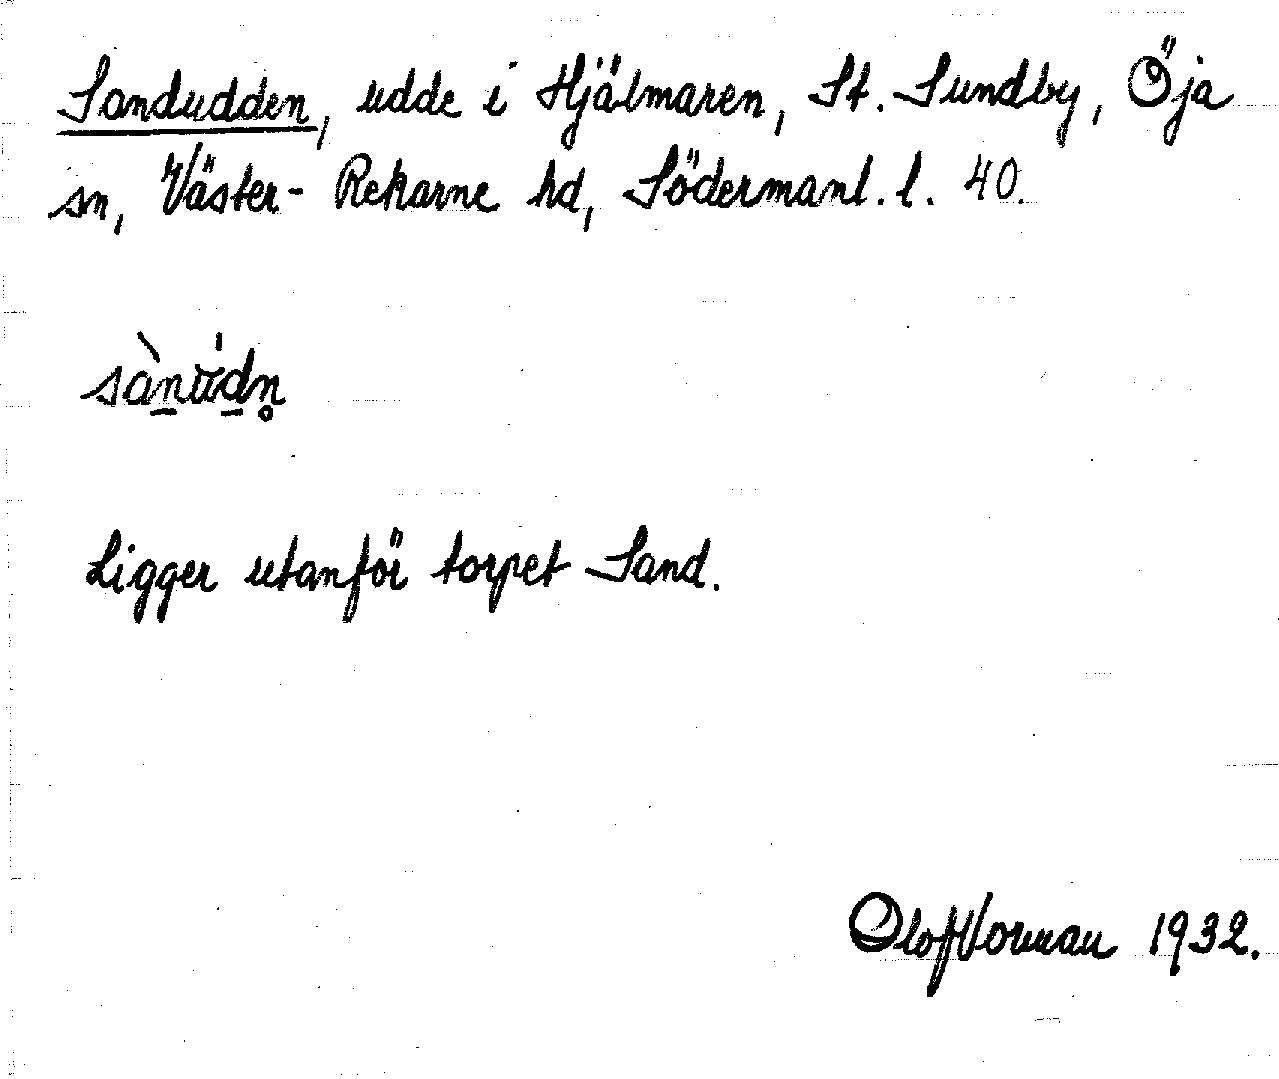 Sandudden, udde i Hjälmaren, St. Sundby, Öja
sn, Väster-Rekarne hd, Södermanl. l. 40.
Ligger utanför torpet Sand.
Olof Norman 1932.